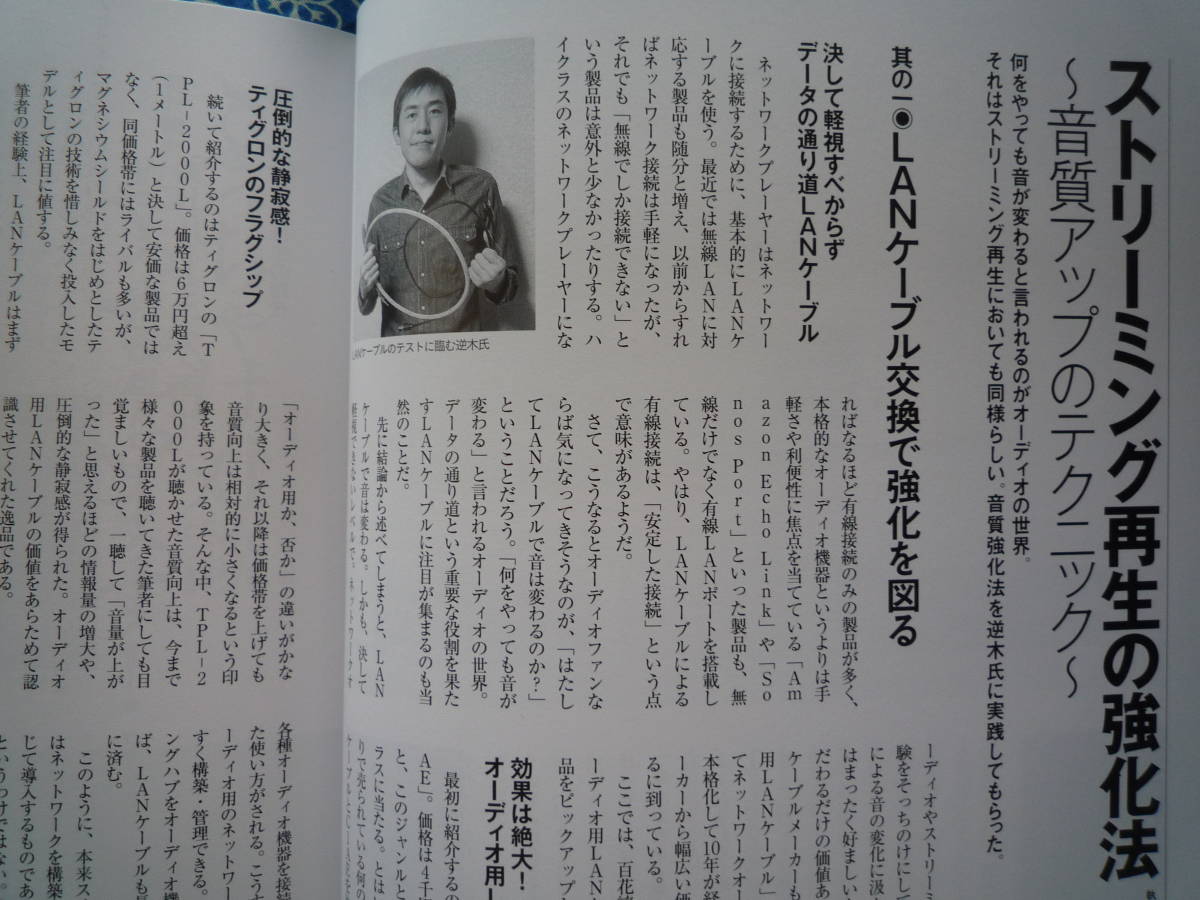 ストリーミング再生の強化法
～音質アップのテクニック～
何をやっても音が変わると言われるのがオーディオの世界。
それはストリーミング再生においても同様らしい。音質強化法を逆木氏に実践してもらった。
其の一◉LANケーブル交換で強化を図る
決して軽視すべからず
データの通り道LANケーブル
ネットワークプレーヤーはネットワー
クに接続するために、基本的にLANケ
ーブルを使う。最近では無線LANに対
応する製品も随分と増え、以前からすれ
ばネットワーク接続は手軽になったが、
それでも「無線でしか接続できない」と
いう製品は意外と少なかったりする。ハ
イクラスのネットワークプレーヤーにな
LANケーブルのテストに臨む逆木氏
ればなるほど有線接続のみの製品が多く、
本格的なオーディオ機器というよりは手
軽さや利便性に焦点を当てている「Am
azon Echo Link」や「So
nos Port」といった製品も、無
線だけでなく有線LANポートを搭載し
ている。やはり、LANケーブルによる
有線接続は、「安定した接続」という点
で意味があるようだ。
さて、こうなるとオーディオファンな
らば気になってきそうなのが、「はたし
てLANケーブルで音は変わるのか？」
ということだろう。「何をやっても音が
変わる」と言われるオーディオの世界。
データの通り道という重要な役割を果た
すLANケーブルに注目が集まるのも当
然のことだ。
先に結論から述べてしまうと、LAN
ケーブルで音は変わる。しかも、決して
軽視できないレベルで。ネットワークオ
ーディオやストリーミ
験をそっちのけにして
による音の変化に汲
はまったく好ましい
だわるだけの価値あ
ケーブルメーカーも
用LANケーブル」
てネットワークオー
本格化して10年が経
ーカーから幅広い価
るに到っている。
ここでは、百花繚
ーディオ用LAN
品をピックアップ
効果は絶大！
オーディオ用L
最初に紹介するの
AE」。価格は4千
と、このジャンルと
ラスに当たる。とは
りで売られている何の
圧倒的な静寂感！
ティグロンのフラグシップ
続いて紹介するのはティグロンの「T
PL-2000L」。価格は6万円超え
（1メートル）と決して安価な製品では
なく、同価格帯にはライバルも多いが、
マグネシウムシールドをはじめとしたテ
ィグロンの技術を惜しみなく投入したモ
デルとして注目に値する。
筆者の経験上、LANケーブルはまず
「オーディオ用か、否か」の違いがかな
り大きく、それ以降は価格帯を上げても
音質向上は相対的に小さくなるという印
象を持っている。そんな中、TPL-2
000Lが聴かせた音質向上は、今まで
様々な製品を聴いてきた筆者にしても目
覚ましいもので、一聴して「音量が上が
った」と思えるほどの情報量の増大や、
圧倒的な静寂感が得られた。オーディオ
用LANケーブルの価値をあらためて認
識させてくれた逸品である。
各種オーディオ機器を接続
た使い方がされる。こうす
ーディオ用のネットワー
すく構築・管理できる。
ングハブをオーディオ機
ば、LANケーブルも長
に済む。
このように、本来ス
はネットワークを構築
じて導入するものであ
というわけではない。